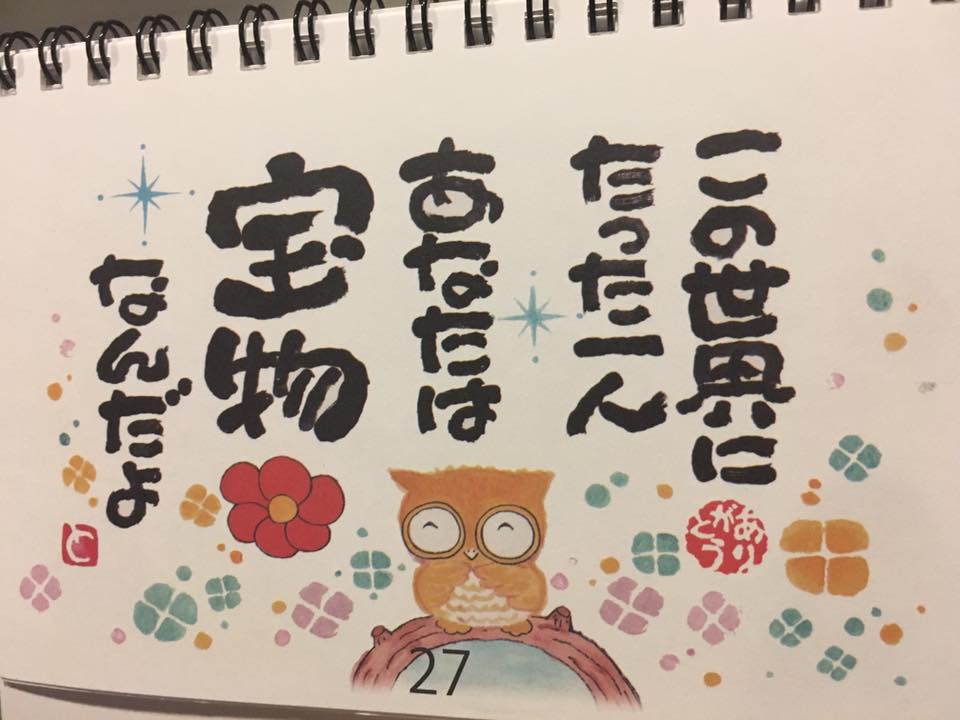 この世界に
たった一人
あなたは
宝物
なんだよ
ありがとう
と
27